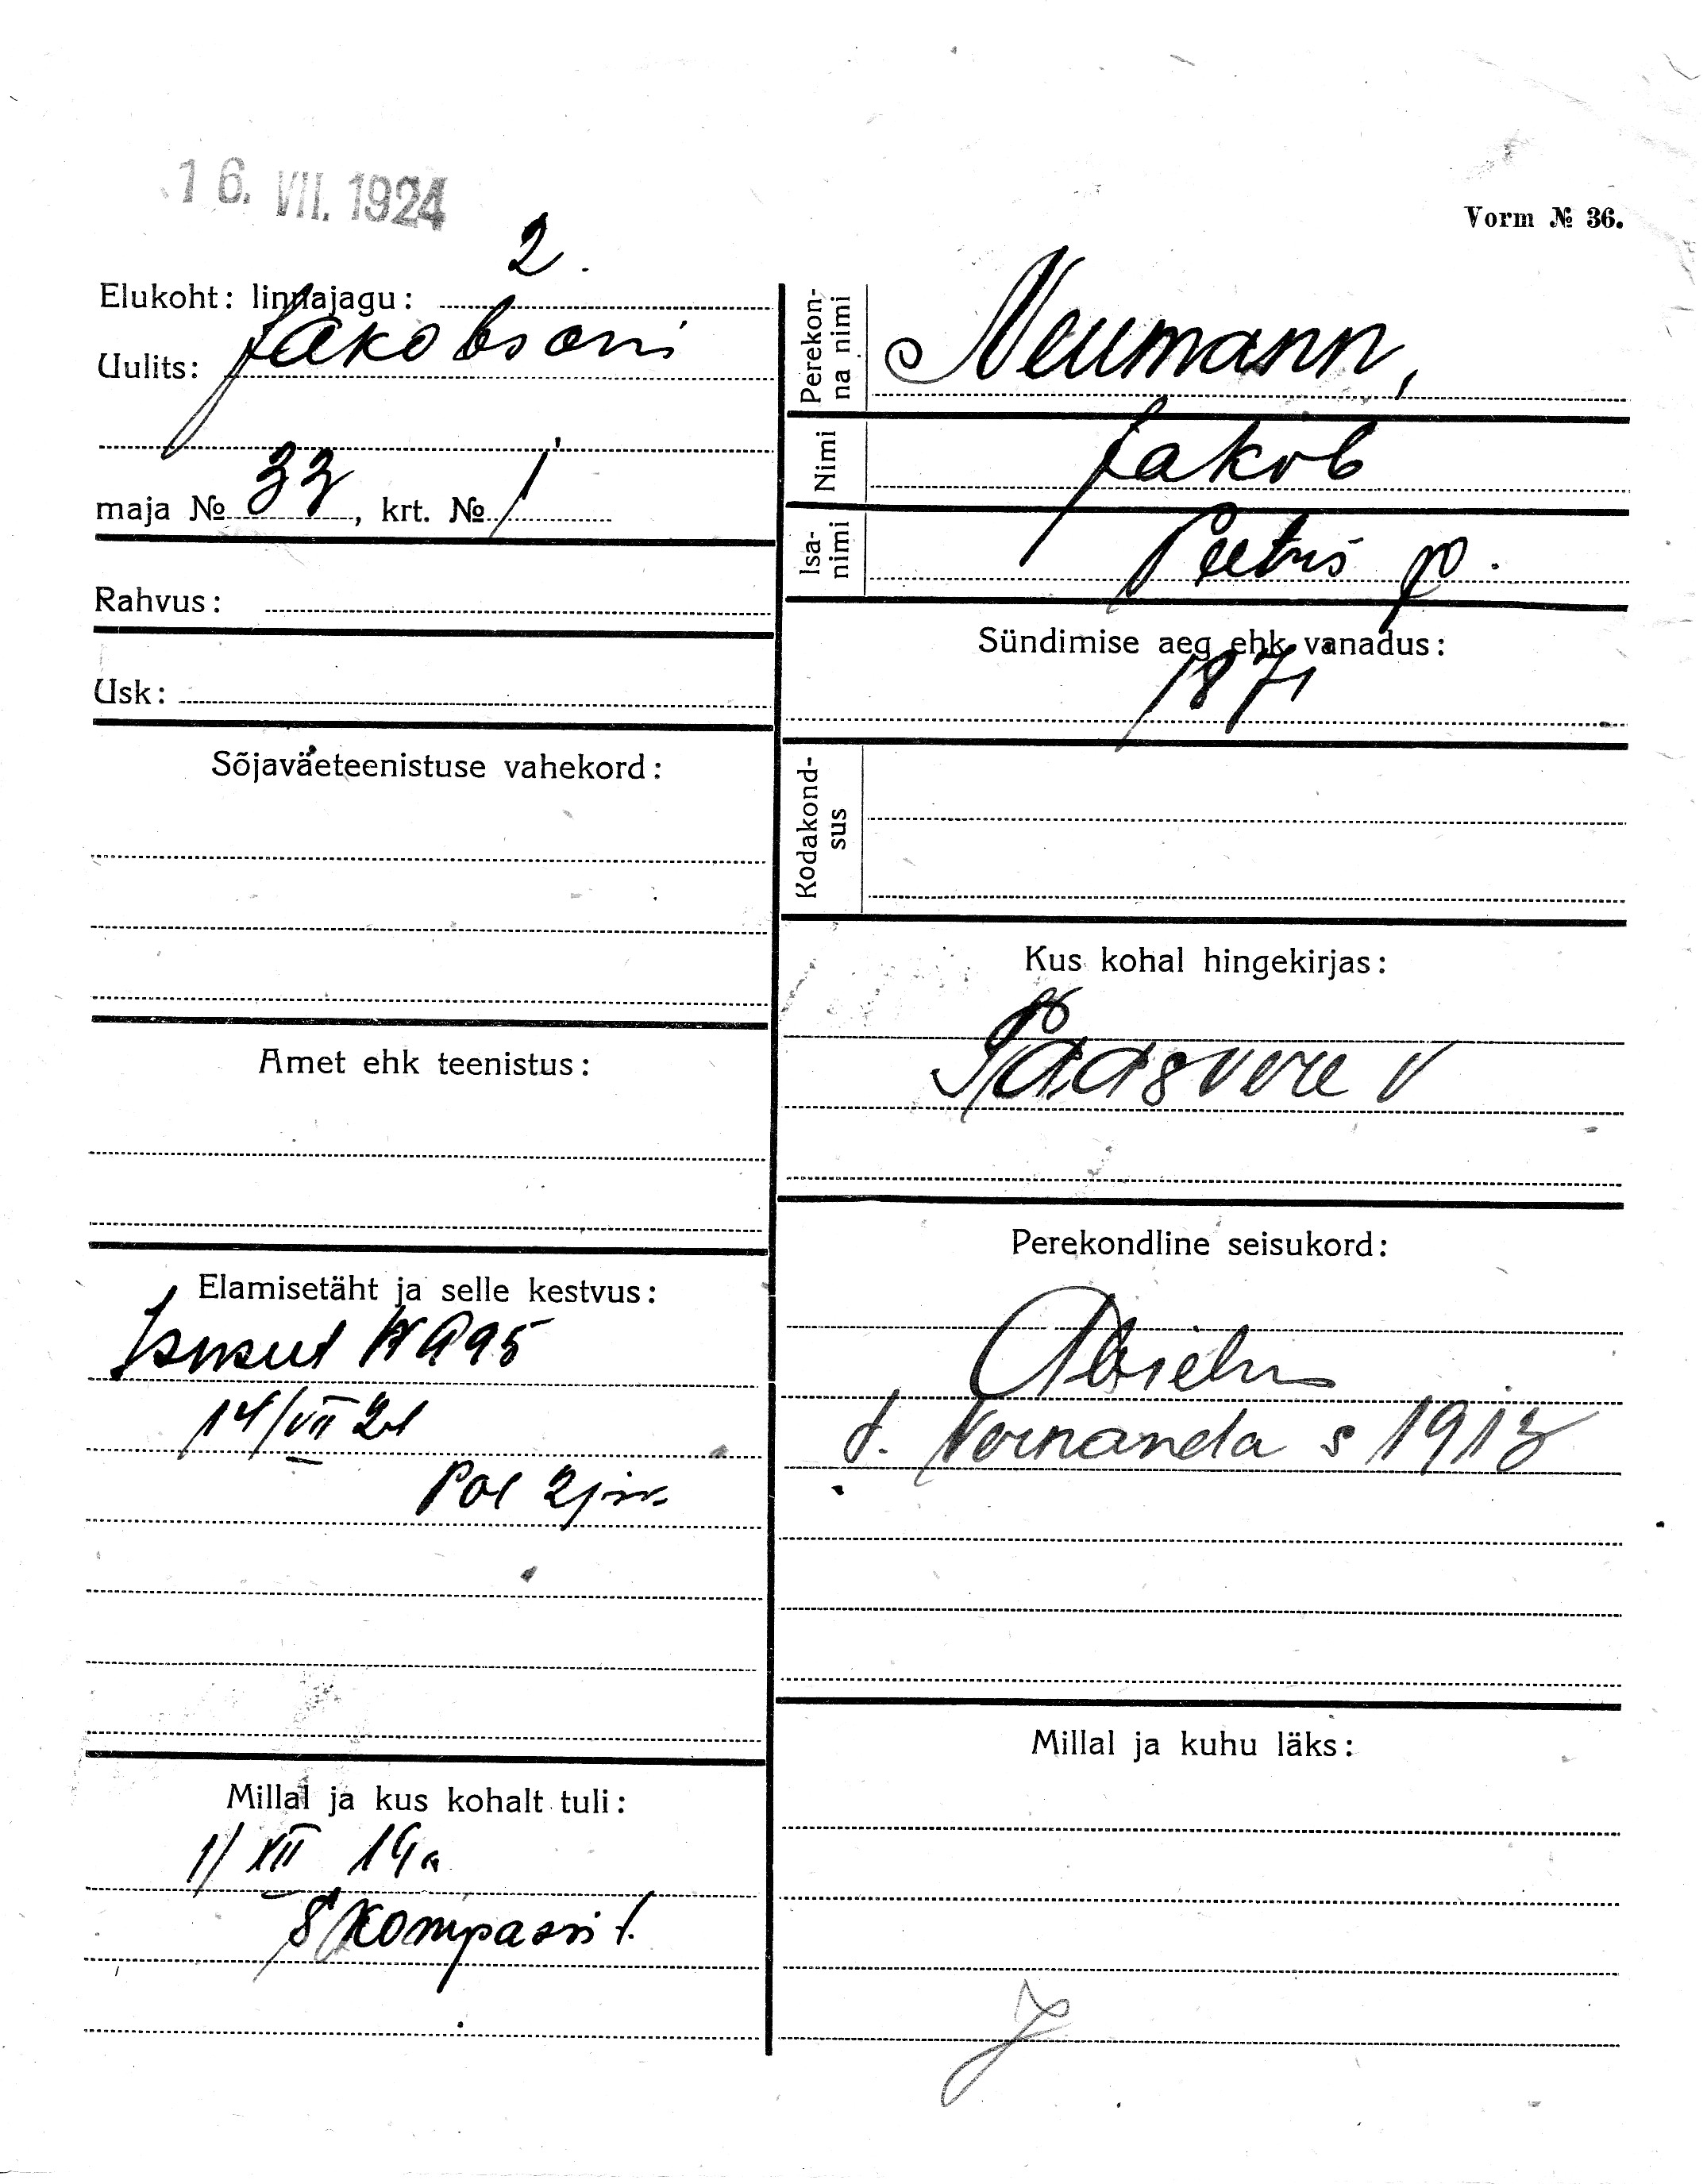 16. VII. 1924
Vorm № 36.
Elukoht: linnajagu: 2.
Uulits: Jakobsoni
maja № 33, krt. № 1
Rahvus:
Usk:
Sõjaväeteenistuse vahekord:
Amet ehk teenistus:
Elamisetäht ja selle kestvus:
14/VII 24
Pol 2 jsk.
Millal ja kus kohalt tuli:
1/XII 19a
Kompassi t.
Perekonna nimi Neumann,
Nimi Jakob
Isanimi Peetris p.
Sündimise aeg ehk vanadus:
1871
Kodakondsus
Kus kohal hingekirjas:
Paasvere v
Perekondline seisukord:
Abielus
t. Vernanda s 1913
Millal ja kuhu läks: